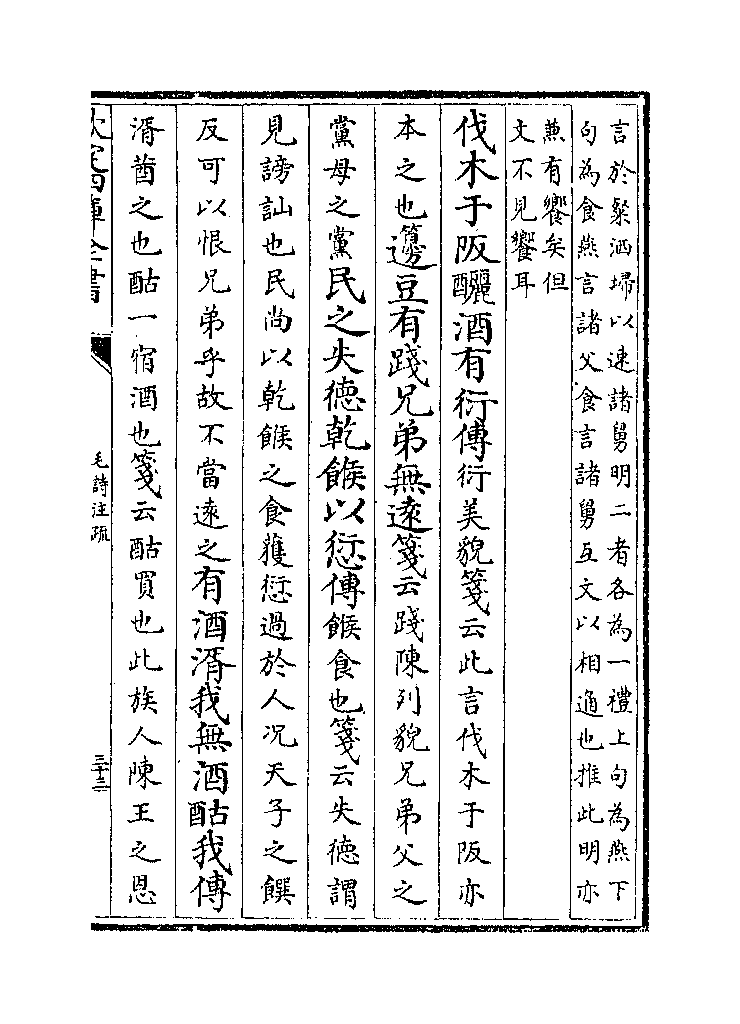 言於粲洒埽以速諸舅明二者各為一禮上句為燕下
句為食燕言諸父食言諸舅互文以相通也推此明亦
燕有饗矣但
文不見饗耳
伐木于阪釃酒有衍傳衍美貌箋云此言伐木于阪亦
本之也籩豆有踐兄弟無遠箋云踐陳列貌兄弟父之
黨母之黨民之失德乾餱以愆傳餱食也箋云失德謂
見謗訕也民尚以乾餱之食獲愆過於人况天子之饌
反可以恨兄弟乎故不當遠之有酒湑我無酒酤我傳
湑莤之也酤一宿酒也箋云酤買也此族人陳王之恩
欽定四庫全書
毛詩注疏
三十三